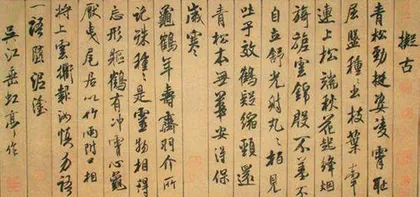 擬古
青松勁挺姿凌霄恥
屈盤種種出枝葉牽
連上松端秋花起絳煙
旖旎雲錦殷不羞不
自立舒光射丸丸柏見
吐子效鶴疑縮頸還
青松本無華安得保
歲寒
龜鶴年壽齊羽介所
託殊種種是靈物相得
忘形軀鶴有沖霄心龜
厭曳尾居以竹兩附口相
將上雲衢報汝慎勿語
一語墮泥塗
吳江垂虹亭作